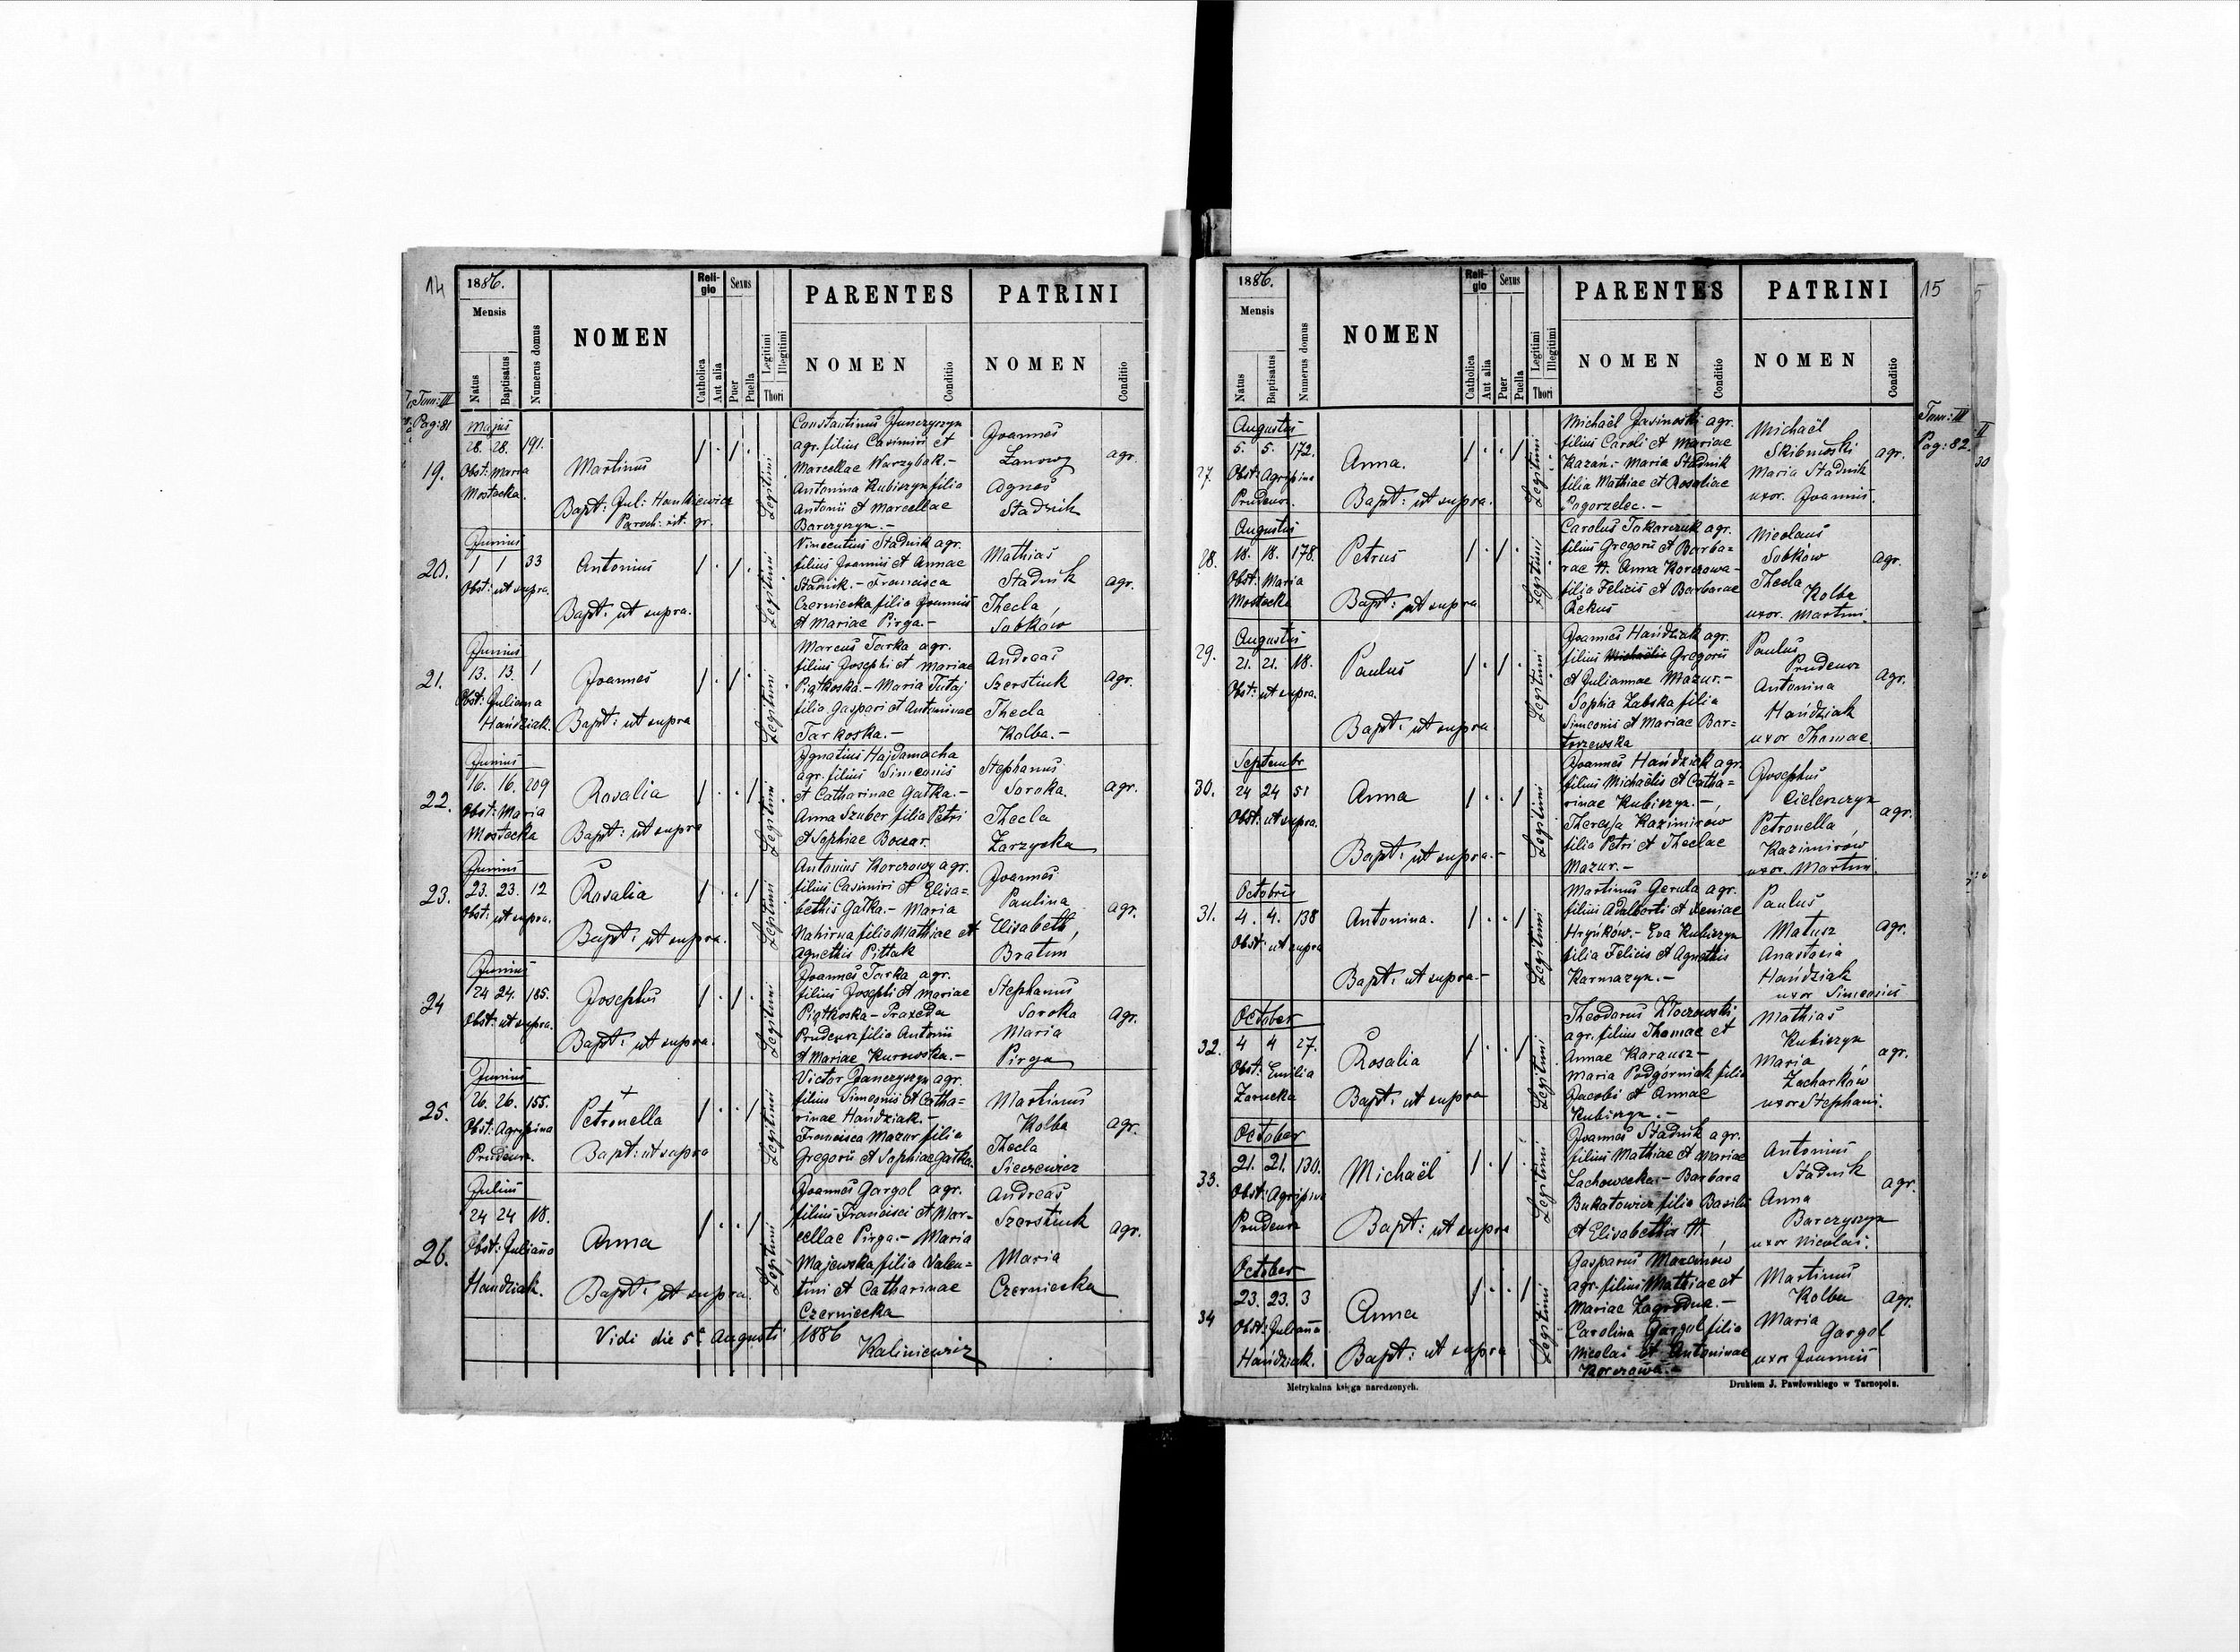 14
1886.
Mensis
Natus
Baptisatus
Numerus domus
NOMEN
Religio
Catholica
Aut alia
Sexus
Puer
Puella
Legitimi
Illegitimi
Thori
PARENTES
NOMEN
Conditio
PATRINI
NOMEN
Conditio
Tom: III
Pag: 81
19.
Majus
28. 28. 191.
Obst: Maria
Mostacka.
Martinus
Bapt: Jul: Hankiewicz
Paroch: rit. gr.
Legitimi
Constantinus Janczyszyn
agr. filius Casimiri et
Marcellae Warzybok. -
Antonina Kubiszyn filia
Antonii et Marcellae
Barczyszyn. -
Joannes
Lanowy
Agnes
Stadnik
agr.
20.
Junius
1 1 33
Obst: ut supra.
Antonius
Bapt: ut supra.
Legitimi
Vincentius Stadnik agr.
filius Joannis et Annae
Stadnik. - Francisca
Czerniecka filia Joannis
et Mariae Pirga. -
Mathias
Stadnik
Thecla
Sobków
agr.
21.
Junius
13. 13. 1
Obst: Julianna
Hańdziak.
Joannes
Bapt: ut supra
Legitimi
Marcus Tarka agr.
filius Josephi et Mariae
Piątkoska. - Maria Tutaj
filia Gaspari et Antoninae
Tarkoska. -
Andreas
Szerstiuk
Thecla
Kolba. -
agr.
22.
Junius
16. 16. 209
Obst: Maria
Mostacka
Rosalia
Bapt: ut supra
Legitimi
Ignatius Hajdamacha
agr. filius Simeonis
et Catharinae Gałka. -
Anna Szuber filia Petri
et Sophiae Bocsar.
Stephanus
Soroka.
Thecla
Zarzycka
agr.
23.
Junius
23. 23. 12
Obst: ut supra.
Rosalia
Bapt: ut supra.
Legitimi
Antonius Korczowy agr.
filius Casimiri et Elisa=
bethis Gałka. - Maria
Nahirna filia Mathiae et
Agnethis Pittak
Joannes
Paulina
Elisabeth
Bratun
agr.
24
Junius
24 24. 185.
Obst: ut supra.
Josephus
Bapt: ut supra.
Legitimi
Joannes Tarka agr.
filius Josephi et Mariae
Piątkoska - Praxeda
Prudeus filia Antonii
et Mariae Kurowska. -
Stephanus
Soroka
Maria
Pirga
agr.
25.
Junius
26. 26. 155.
Obst: Agripina
Prudeus.
Petronella
Bapt: ut supra
Legitimi
Victor Janczyszyn agr.
filius Simeonis et Catha=
rinae Hańdziak. -
Francisca Mazur filia
Gregorii et Sophiae Gałka.
Martinus
Kolba
Thecla
Sieczewicz
agr.
26.
Julius
24 24 18.
Obst: Julianna
Handziak.
Anna
Bapt: ut supra.
Legitimi
Joannes Gargol agr.
filius Francisci et Mar=
cellae Pirga. - Maria
Majewska filia Valen=
tini et Catharinae
Czerniecka
Andreas
Szerstiuk
Maria
Czerniecka
agr.
Vidi die 5ta Augusti 1886
Kaliniewicz
15
1886.
Mensis
Natus
Baptisatus
Numerus domus
NOMEN
Religio
Catholica
Aut alia
Sexus
Puer
Puella
Legitimi
Illegitimi
Thori
PARENTES
NOMEN
Conditio
PATRINI
NOMEN
Conditio
Tom: III
Pag: 82
27.
Augustus
5. 5. 172.
Obst: Agripina
Prudeus.
Anna.
Bapt: ut supra.
Legitimi
Michaël Jasinoski agr.
filius Caroli et Mariae
Kazań. - Maria Stadnik
filia Mathiae et Rosaliae
Pogorzelec. -
Michaël
Skibnoski
Maria Stadnik
uxor. Joannis.
agr.
28.
Augustus
18. 18. 178.
Obst: Maria
Mostacka
Petrus
Bapt: ut supra
Legitimi
Carolus Tokarczuk agr.
filius Gregorii et Barba=
rae N. Anna Korczowa -
filia Felicis et Barbarae
Rekus
Nicolaus
Sobków
Thecla
Kolba
uxor. Martini.
agr.
29.
Augustus
21. 21. 18.
Obst: ut supra.
Paulus
Bapt: ut supra
Legitimi
Joannes Hańdziak agr.
filius Michaëlis Gregorii
et Juliannae Mazur. -
Sophia Zabska filia
Simeonis et Mariae Bar=
torzewska
Paulus
Prudeus
Antonina
Hańdziak
uxor Thomae.
agr.
30.
Septembr
24 24 51
Obst: ut supra.
Anna
Bapt: ut supra. -
Legitimi
Joannes Hańdziak agr.
filius Michaëlis et Catha=
rinae Kubiszyn. -
Theressa Kazimirów
filia Petri et Theclae
Mazur. -
Josephus
Cielenczyn
Petronella
Kazimirów
uxor. Martini.
agr.
31.
Octobris
4. 4. 138
Obst: ut supra
Antonina.
Bapt: ut supra -
Legitimi
Martinus Gerula agr.
filius Adalberti et Xeniae
Hryńków. - Eva Kubiszyn
filia Felicis et Agnethis
Karmazyn. -
Paulus
Matusz
Anastasia
Hańdziak
uxor Simeonis
agr.
32.
October
4 4 27.
Obst: Emilia
Zarucka
Rosalia
Bapt: ut supra
Legitimi
Theodorus Kłoczowski
agr. filius Thomae et
Annae Karausz -
Maria Podgórniak filia
Jacobi et Annae
Kubiszyn. -
Mathias
Kubiszyn
Maria
Zacharków
uxor Stephani.
agr.
33.
October
21. 21. 130.
Obst: Agripina
Prudeus
Michaël
Bapt: ut supra
Legitimi
Joannes Stadnik agr.
filius Mathiae et Mariae
Lachowecka. - Barbara
Bukatowicz filia Basilii
et Elisabethis N.
Antonius
Stadnik
Anna
Barczyszyn
uxor Nicolai.
agr.
34
October
23. 23. 3
Obst: Julianna
Hańdziak.
Anna
Bapt: ut supra
Legitimi
Gasparus Marcinów
agr. filius Mathiae et
Mariae Zagrodna. -
Carolina Gargol filia
Nicolai et Antoninae
Korczowa. -
Martinus
Kolba
Maria
Gargol
uxor Joannis
agr.
Metrykalna księga narodzonych.
Drukiem J. Pawłowskiego w Tarnopolu.